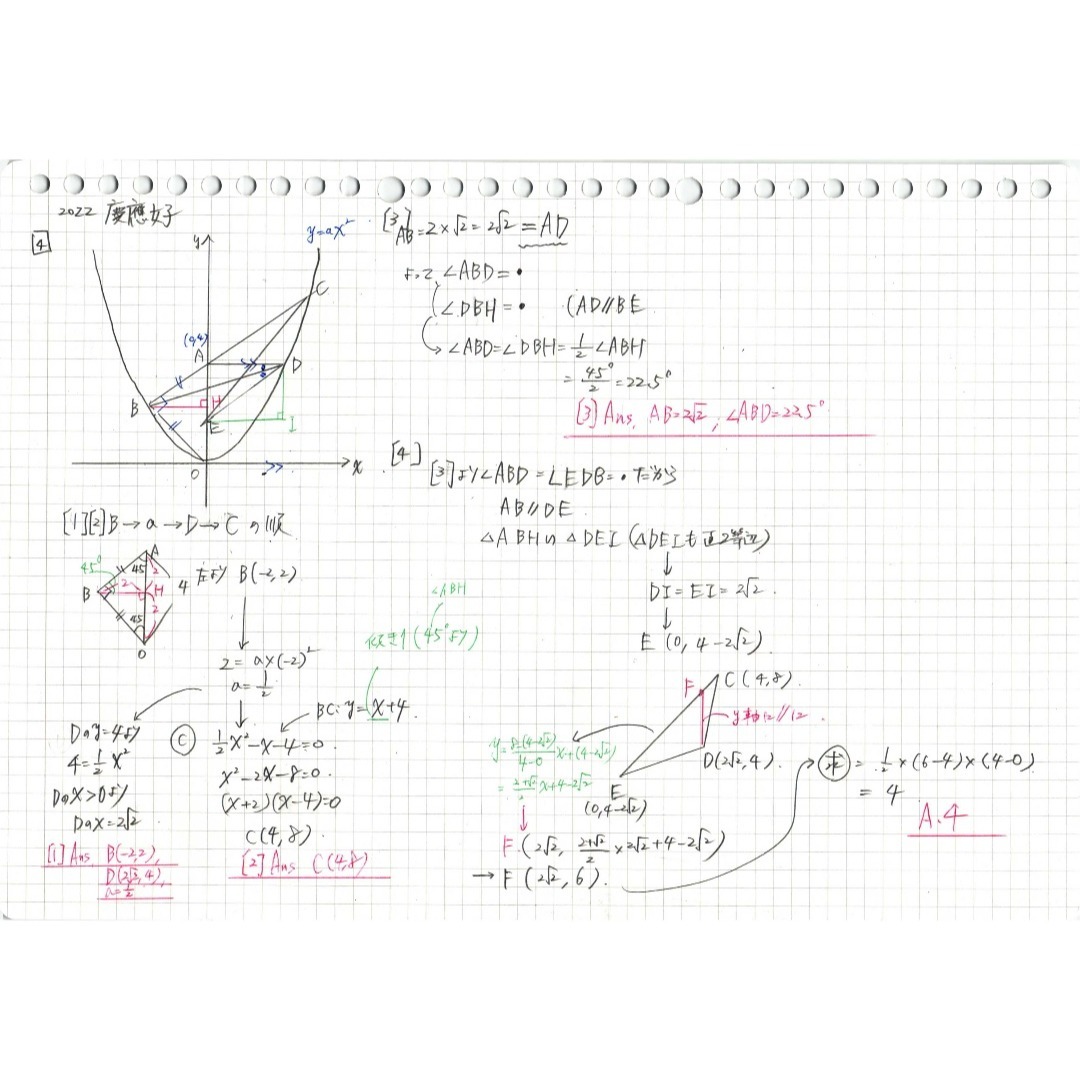 2022 慶應女子
4
y
y=ax²
C
(0,4)
A
D
B
H
E
I
O
x
[1][2] B→a→D→C の順
A
45°
45
2
B
2
H
4
2
45
O
左より B(-2,2)
2=a×(-2)²
a=1/2
Dのy=4より
4=1/2 x²
Dのx>0より
Dのx=2√2
[1] Ans B(-2,2),
D(2√2,4),
a=1/2
∠ABH
傾き1(45°より)
BC:y=x+4
C
1/2 x²-x-4=0.
x²-2x-8=0.
(x+2)(x-4)=0
C(4,8).
[2] Ans C(4,8)
[3]
AB=2×√2=2√2=AD
よって∠ABD=•
∠DBH=• (AD//BE
∠ABD=∠DBH=1/2∠ABH
=45°/2=22.5°
[3] Ans, AB=2√2, ∠ABD=22.5°
[4]
[3]より∠ABD=∠EDB=•だから
AB//DE
△ABH∽△DEI (△DEIも直2等辺)
DI=EI=2√2.
E(0, 4-2√2)
F
C(4,8).
y軸に//に.
D(2√2,4).
E
(0,4-2√2)
y=8-(4-2√2)/4-0 x+(4-2√2)
=2+√2/2 x+4-2√2
F(2√2, 2+√2/2×2√2+4-2√2)
→F(2√2,6).
求=1/2×(6-4)×(4-0)
=4
A.4